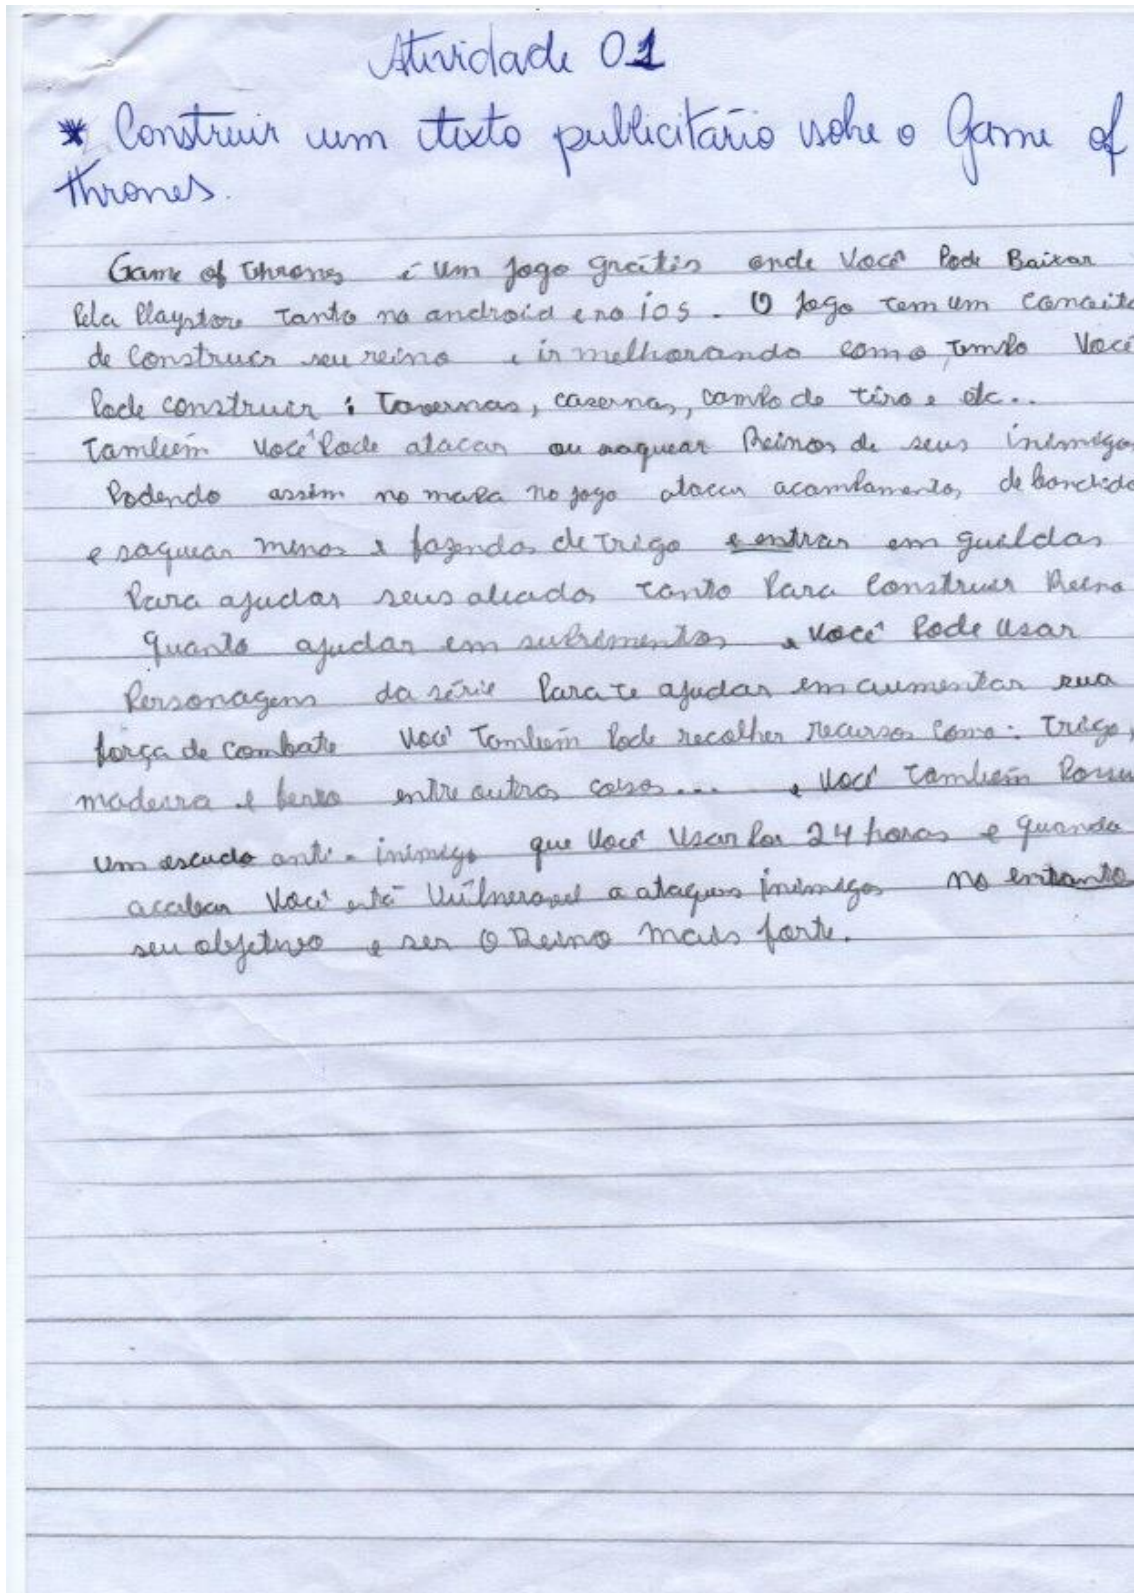 Atividade 01
* Construir um texto publicitário sobre o Game of
thrones.
Game of Thrones é um jogo grátis onde você pode Baixar
Pela Playstore tanto no android e no ios. O jogo tem um conceito
de construir seu reino e ir melhorando com o tempo você
Pode construir : Tavernas, casernas, campo de tiro e etc..
Também você Pode atacar ou saquear Reinos de seus inimigos
Podendo assim no mapa no jogo atacar acampamentos de bandido
e saquear minas e fazendas de trigo e entrar em guildas
Para ajudar seus aliados tanto Para construir Reino
quanto ajudar em suprimentos e você Pode usar
Personagens da série Para te ajudar em aumentar sua
força de combate você Também Pode recolher recursos como : Trigo,
madeira e ferro entre outras coisas... e você Também Possui
um escudo anti-inimigo que você Usar Por 24 horas e quando
acabar você está Vulneravel a ataques inimigos no entanto
seu objetivo e ser O Reino mais forte.